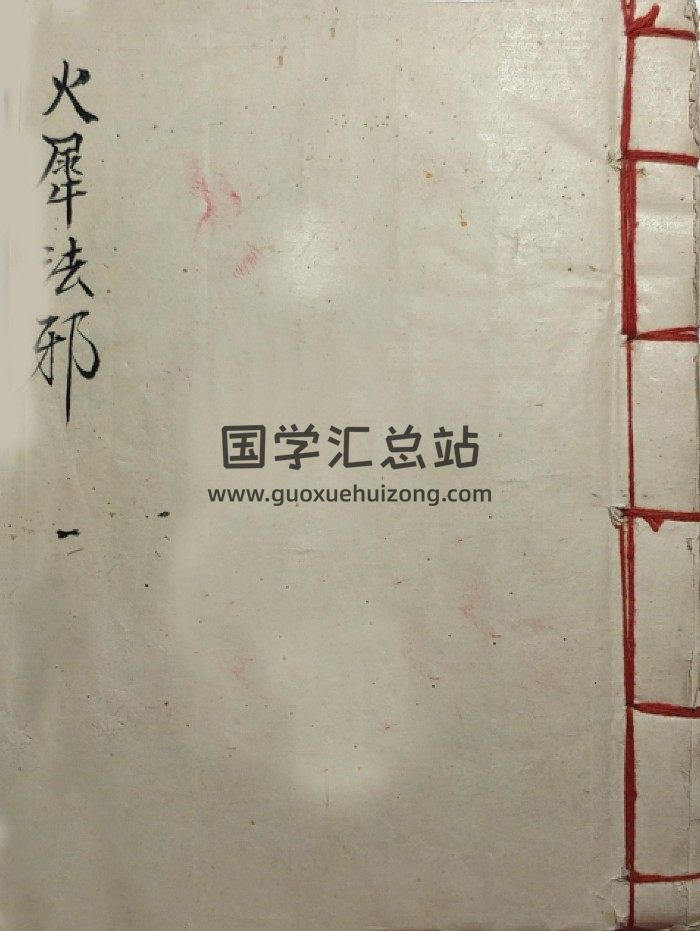 火犀法邪
一
国学汇总站
www.guoxuehuizong.com